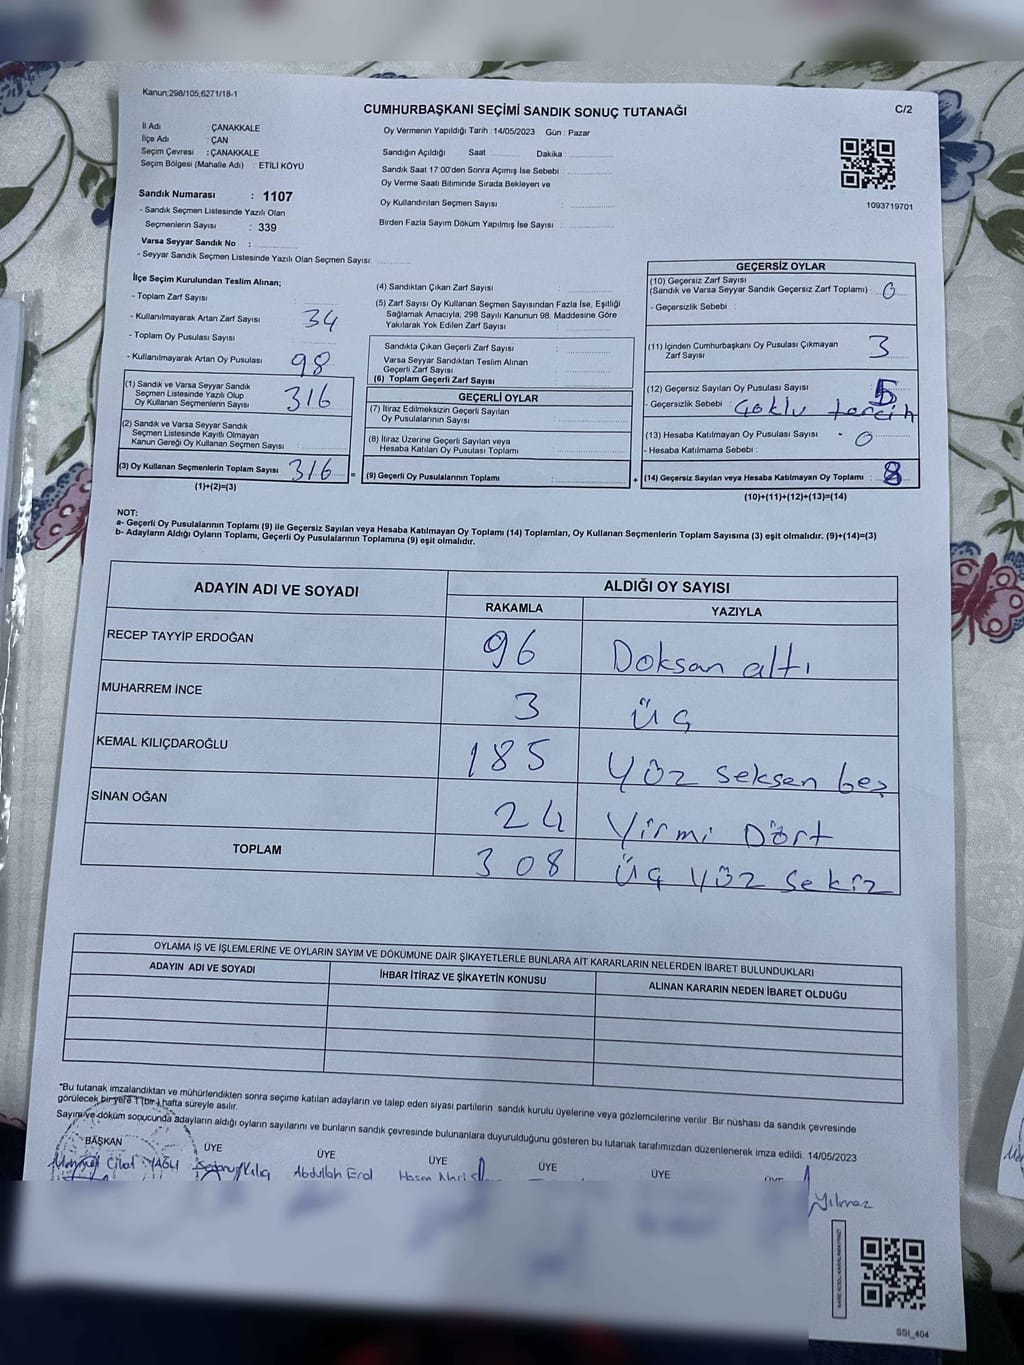 Kanun;298/105;6271/18-1
CUMHURBAŞKANI SEÇİMİ SANDIK SONUÇ TUTANAĞI
C/2
İl Adı : ÇANAKKALE
İlçe Adı : ÇAN
Seçim Çevresi : ÇANAKKALE
Seçim Bölgesi (Mahalle Adı) : ETİLİ KÖYÜ
Oy Vermenin Yapıldığı Tarih : 14/05/2023 Gün : Pazar
Sandığın Açıldığı Saat Dakika :
Sandık Saat 17:00'den Sonra Açımış İse Sebebi :
Oy Verme Saati Bitiminde Sırada Bekleyen ve
Oy Kullandırılan Seçmen Sayısı :
Birden Fazla Sayım Döküm Yapılmış İse Sayısı :
1093719701
Sandık Numarası : 1107
- Sandık Seçmen Listesinde Yazılı Olan
Seçmenlerin Sayısı : 339
Varsa Seyyar Sandık No :
- Seyyar Sandık Seçmen Listesinde Yazılı Olan Seçmen Sayısı:
İlçe Seçim Kurulundan Teslim Alınan;
- Toplam Zarf Sayısı :
- Kullanılmayarak Artan Zarf Sayısı : 34
- Toplam Oy Pusulası Sayısı :
- Kullanılmayarak Artan Oy Pusulası : 98
(1) Sandık ve Varsa Seyyar Sandık
Seçmen Listesinde Yazılı Olup
Oy Kullanan Seçmenlerin Sayısı : 316
(2) Sandık ve Varsa Seyyar Sandık
Seçmen Listesinde Kayıtlı Olmayan
Kanun Gereği Oy Kullanan Seçmen Sayısı :
(3) Oy Kullanan Seçmenlerin Toplam Sayısı : 316
(1)+(2)=(3)
=
(4) Sandıktan Çıkan Zarf Sayısı :
(5) Zarf Sayısı Oy Kullanan Seçmen Sayısından Fazla İse, Eşitliği
Sağlamak Amacıyla, 298 Sayılı Kanunun 98. Maddesine Göre
Yakılarak Yok Edilen Zarf Sayısı :
Sandıkta Çıkan Geçerli Zarf Sayısı :
Varsa Seyyar Sandıktan Teslim Alınan
Geçerli Zarf Sayısı :
(6) Toplam Geçerli Zarf Sayısı :
GEÇERLİ OYLAR
(7) İtiraz Edilmeksizin Geçerli Sayılan
Oy Pusulalarının Sayısı :
(8) İtiraz Üzerine Geçerli Sayılan veya
Hesaba Katılan Oy Pusulası Toplamı :
(9) Geçerli Oy Pusulalarının Toplamı :
+
GEÇERSİZ OYLAR
(10) Geçersiz Zarf Sayısı
(Sandık ve Varsa Seyyar Sandık Geçersiz Zarf Toplamı) : 0
- Geçersizlik Sebebi :
(11) İçinden Cumhurbaşkanı Oy Pusulası Çıkmayan
Zarf Sayısı : 3
(12) Geçersiz Sayılan Oy Pusulası Sayısı : 5
- Geçersizlik Sebebi : Çoklu tercih
(13) Hesaba Katılmayan Oy Pusulası Sayısı : 0
- Hesaba Katılmama Sebebi :
(14) Geçersiz Sayılan veya Hesaba Katılmayan Oy Toplamı : 8
(10)+(11)+(12)+(13)=(14)
NOT:
a- Geçerli Oy Pusulalarının Toplamı (9) ile Geçersiz Sayılan veya Hesaba Katılmayan Oy Toplamı (14) Toplamları, Oy Kullanan Seçmenlerin Toplam Sayısına (3) eşit olmalıdır. (9)+(14)=(3)
b- Adayların Aldığı Oyların Toplamı, Geçerli Oy Pusulalarının Toplamına (9) eşit olmalıdır.
ADAYIN ADI VE SOYADI
ALDIĞI OY SAYISI
RAKAMLA YAZIYLA
RECEP TAYYİP ERDOĞAN 96 Doksan altı
MUHARREM İNCE 3 üç
KEMAL KILIÇDAROĞLU 185 Yüz seksen beş
SİNAN OĞAN 24 Yirmi Dört
TOPLAM 308 üç yüz sekiz
OYLAMA İŞ VE İŞLEMLERİNE VE OYLARIN SAYIM VE DÖKÜMÜNE DAİR ŞİKAYETLERLE BUNLARA AİT KARARLARIN NELERDEN İBARET BULUNDUKLARI
ADAYIN ADI VE SOYADI İHBAR İTİRAZ VE ŞİKAYETİN KONUSU ALINAN KARARIN NEDEN İBARET OLDUĞU
*Bu tutanak imzalandıktan ve mühürlendikten sonra seçime katılan adayların ve talep eden siyasi partilerin sandık kurulu üyelerine veya gözlemcilerine verilir. Bir nüshası da sandık çevresinde
görülecek bir yere 1 (bir) hafta süreyle asılır.
Sayım ve döküm sonucunda adayların aldığı oyların sayılarını ve bunların sandık çevresinde bulunanlara duyurulduğunu gösteren bu tutanak tarafımızdan düzenlenerek imza edildi. 14/05/2023
BAŞKAN ÜYE ÜYE ÜYE ÜYE ÜYE
YAĞLI Kılıç Abdullah Erol Hasan
Yılmaz
SSI_404